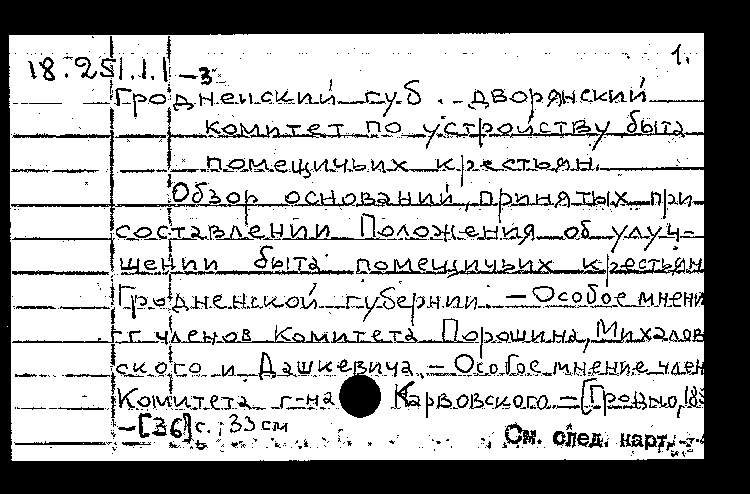 1.
18.251.1.1 -3
Гродненский губ. дворянский
комитет по устройству быта
помещичьих крестьян.
Обзор оснований, принятых при
составлении Положения об улуч-
шении быта помещичьих крестьян
Гродненской губернии. - Особое мнени
гг. членов Комитета Порошина, Михалов
ского и Дашкевича. - Особое мнение член
Комитета г-на Карвовского - [Гродно, 185
- [36] с.; 33 см
См. след. карт.